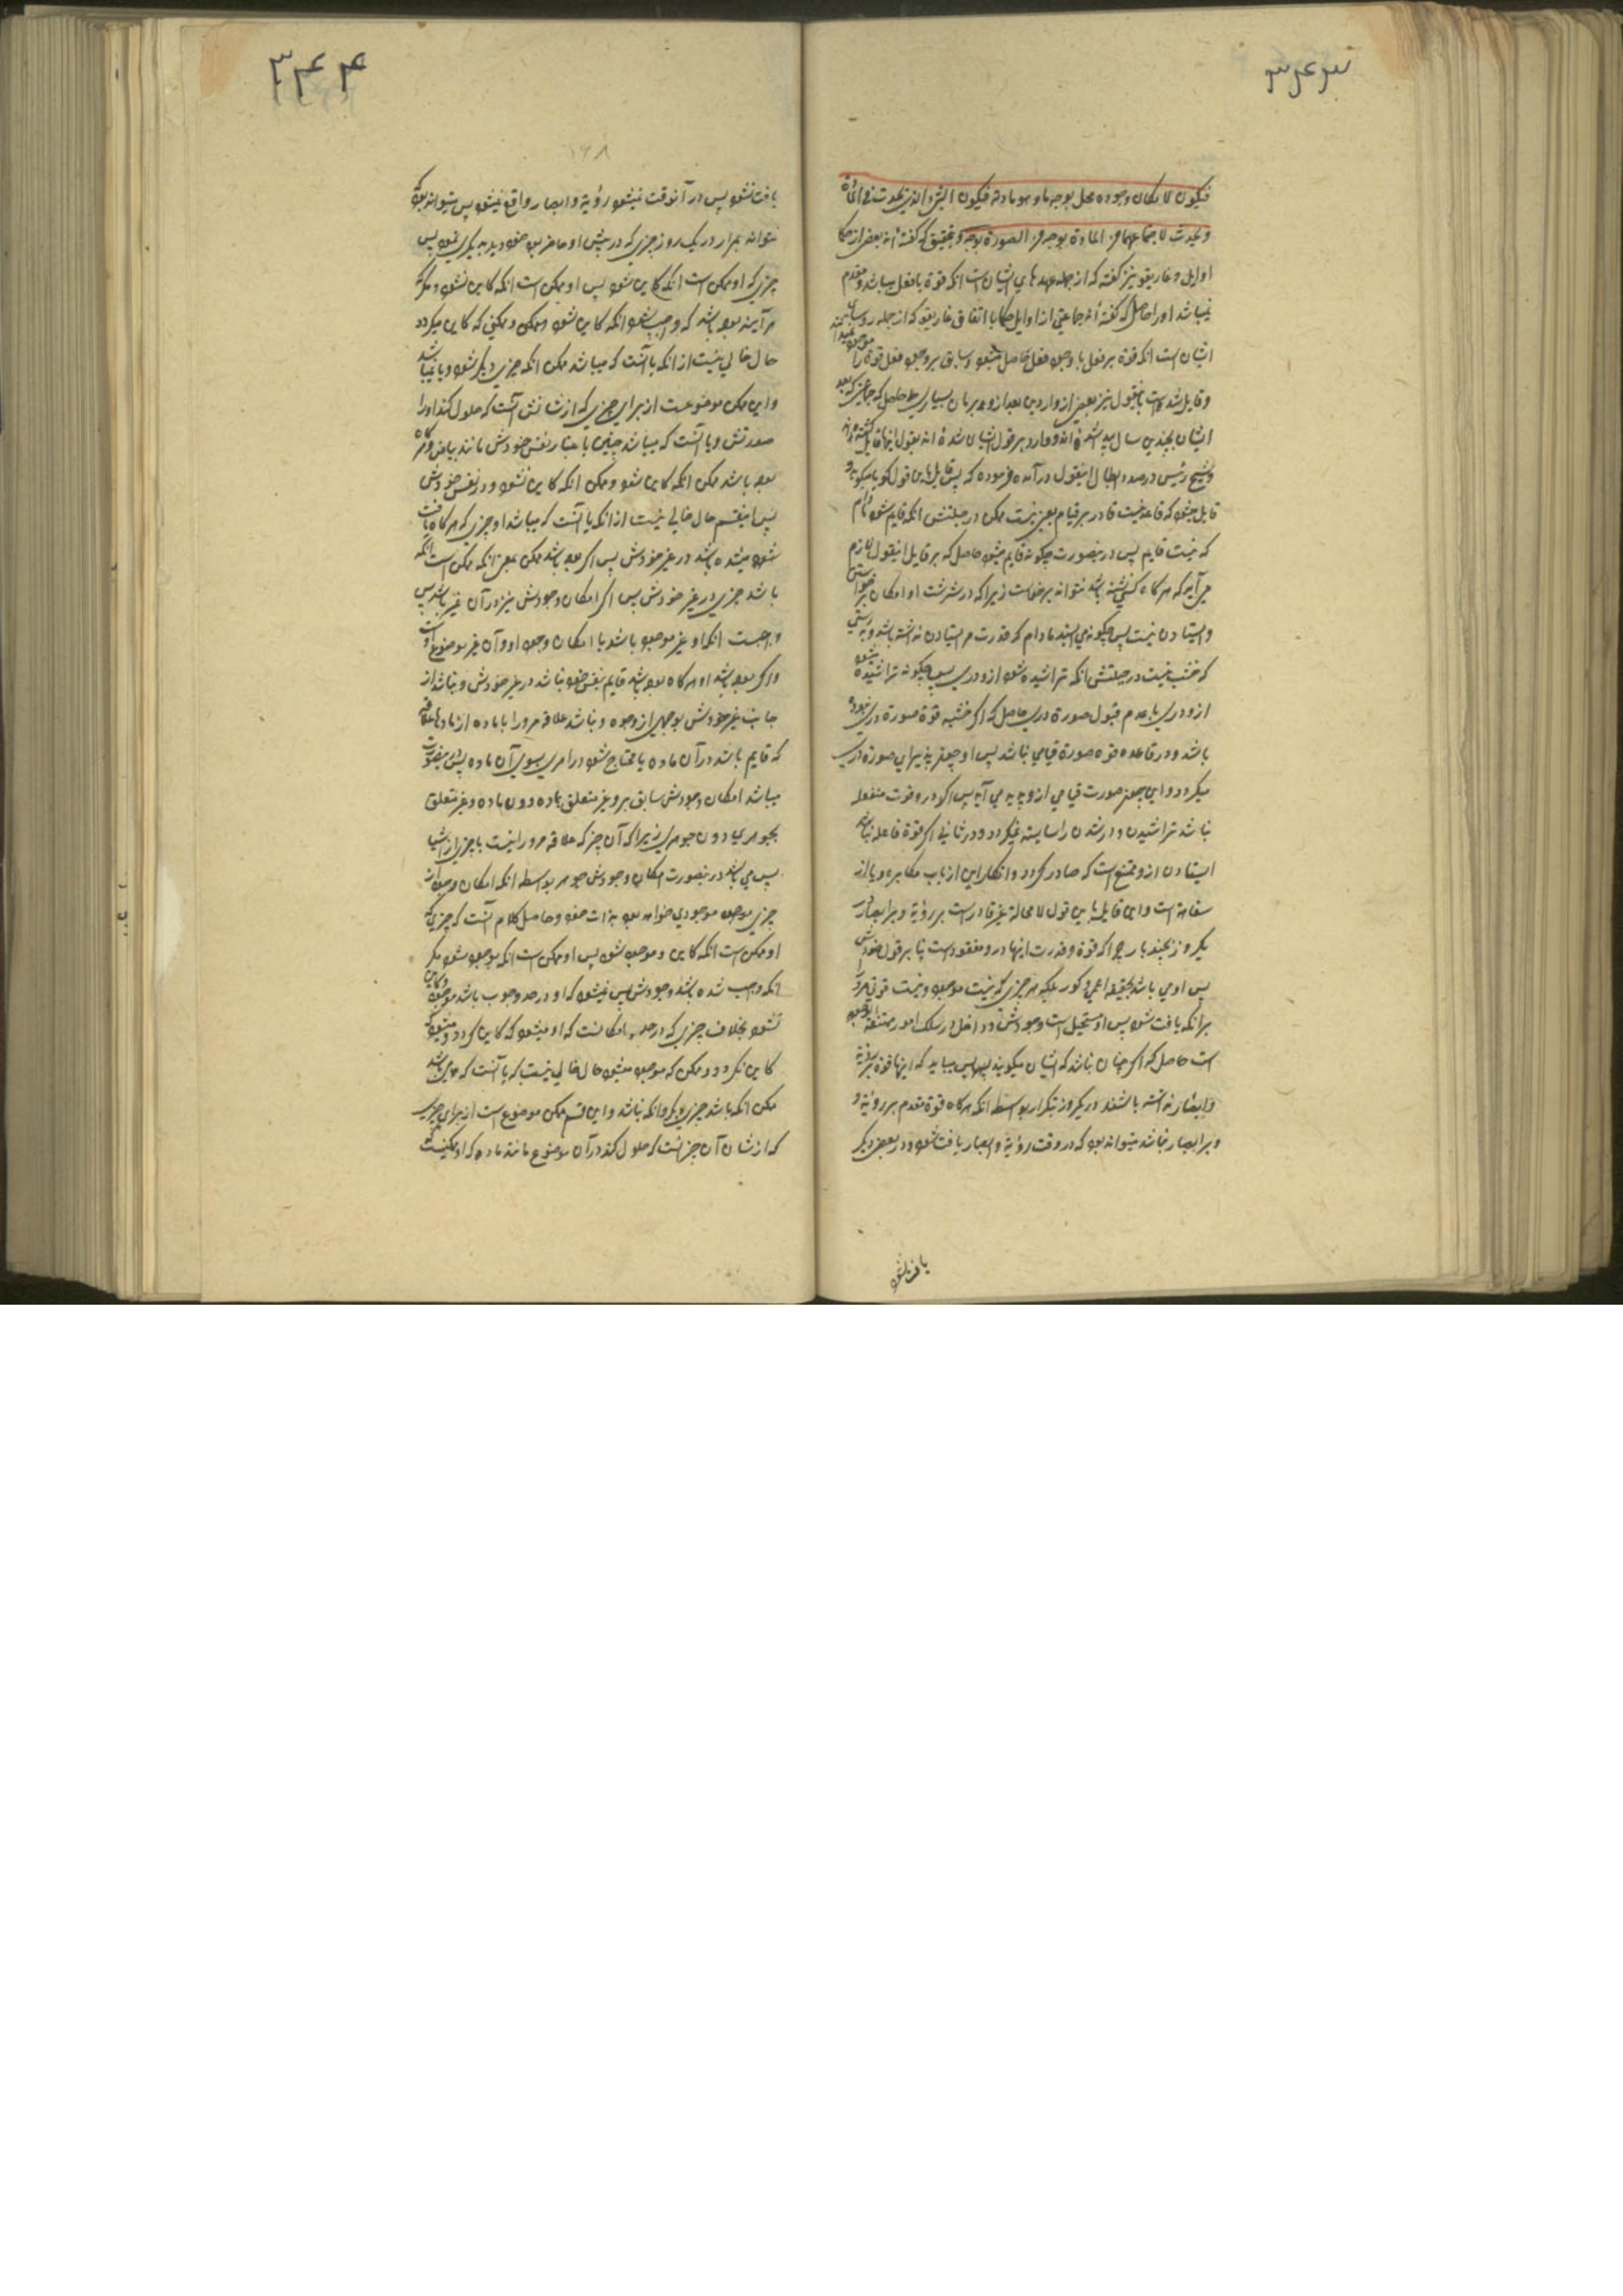 ۳۴۳
فیکون لامکان وجوده محل بوجه ما و هو مادته فیکون الشی الذی یحدث فی المادة
و یحدث لاجتماعهما من المادة بوجه و من الصورة بوجه و تحقیق که گفته اند بعضی از حکما
اوایل و غاریقو نیز گفته که از جمله عهدهای ایشان است انکه قوة با فعل میباشد و مقدم
نمیباشد او را حاصل که گفته اند جماعتی از اوایل حکما با اتفاق غاریقو که از جمله روسای
ایشان است انکه قوة بر فعل با وجود فعل حاصل میشود و سابق بر وجود فعل قوة را
و قایل شده است باینقول نیز بعضی از واردین بعد از و بزمان بسیاری حاصل که جماعتی که بعد
ایشان بچندین سال پیدا شده اند و وارد بر قول ایشان شده اند بقول اینها قایل گشته اند
و شیخ رئیس در صدد ابطال اینقول در آمده فرموده که پس قایل باین قول گویا میگوید و
قایل میشود که قاعد نیست قادر بر قیام یعنی نیست ممکن در جبلتش انکه قایم شود مادام
که نیست قایم پس درینصورت چگونه قایم میشود حاصل که بر قایل اینقول لازم
می آید که هرگاه کسی نشسته باشد نتواند برخاست زیرا که در سرشت او امکان برخواستن
و ایستادن نیست پس چگونه می ایستد مادام که قدرت بر ایستادن نداشته باشد و بدرستی
که خشب نیست در جبلتش انکه تراشیده شود ازو دری پس چگونه تراشیده میشود
ازو دری با عدم قبول صورة دری حاصل که اگر خشبه قوة صورة دری نبوده
باشد و در قاعده قوه صورة قیامی نباشد پس او چطور پذیرای صورة دری
میگردد و این بچه صورت قیامی ازو پدید می آید پس اگر در و قوت منفعله
نباشد تراشیدن و در شدن را شایسته نمیگردد و در ثانی اگر قوة فاعله نباشد
ایستادن ازو ممتنع است که صادر گردد و انکار این از باب مکابره و یا از
سفاهة است و این قایل باین قول لامحالة غیر قادر است بر رؤیة و بر ابصار در
یکروز بچند بار چرا که قوة و قدرت اینها درو مفقود است بنا بر قول خودش
پس او می باشد بحقیقه اعمی و کور بلکه هر چیزی که نیست موجود و نیست قوتی مر او را
بر انکه یافت شود پس او مستحیل است وجودش و داخل در سلک امور ممتنعة
است حاصل که اگر چنان باشد که ایشان میگویند پس می باید که اینها قوة بر رؤیة
و ابصار نداشته باشند در یکروز بتکرار بواسطه انکه هرگاه قوة مقدم بر رؤیة و
و بر ابصار نباشد میتواند بود که در وقت رؤیة و ابصار یافت شود و در بعضی دیگر
یافت نشود
۳۴۴
۱۶۸
یافت نشود پس در آنوقت نمیشود رؤیة و ابصار واقع نمیشود پس میتواند بود که
نتواند بمرار در یک روز چیزی که در پیش او حاضر بود خود دید به یکبار نمود پس
چیزی که او ممکن است انکه کاین شود پس او ممکن است انکه کاین نشود و مگر نه
هر آینه بوده باشد که واجب شود انکه کاین شود و ممکن و ممکنی که کاین میگردد
حال خالی نیست از انکه یا آنست که میباشد ممکن انکه چیزی دیگر شود و یا نمیباشد
و این ممکن موضوعست از برای چیزی که از شانش آنست که حلول کند او را
صورتش و یا آنست که میباشد چنین باعتبار نفس خودش مانند بیاض هرگاه
بوده باشد ممکن انکه کاین شود و ممکن انکه کاین نشود و در نفس خودش
پس اینقسم حال خالی نیست از انکه یا آنست که میباشد او چیزی که هرگاه یافت
شود میشده باشد در غیر خودش پس اگر بوده باشد ممکن بمعنی انکه ممکن است انکه
باشد چیزی در غیر خودش پس امکان وجودش نیز در آن غیر باشد پس
واجبست انکه او غیر موجود باشد با امکان وجود او و آن غیر موضوع اوست
و اگر بوده باشد او هرگاه بوده باشد قایم بنفس خود نباشد در غیر خودش و نباشد از
جانب غیر خودش بوجهی از وجوه و نباشد علاقه مر او را با ماده از مادها علاقه
که قایم باشد در آن ماده یا محتاج شود در امری بسوی آن ماده پس درینصورت
میباشد امکان وجودش سابق برو غیر متعلق بماده دون ماده و غیر متعلق
بجوهری دون جوهری زیرا که آن چیز که علاقه مر او را نیست با چیزی از اشیا
پس می باشد درینصورت امکان وجودش جوهر بواسطه انکه امکان وجود آن
چیزی موجود موجودی خواهد بود بذات خود و حاصل کلام آنست که چیزی که
او ممکن است انکه کاین و موجود شود پس او ممکن است انکه موجود نشود مگر
انکه واجب شده باشد وجودش پس نمیشود که او در حد وجوب باشد موجود و کاین
نشود بخلاف چیزی که در حد امکانست که او میشود که کاین گردد و میشود که
کاین نگردد و ممکن که موجود میشود حال خالی نیست که یا آنست که می باشد
ممکن انکه باشد چیزی دیگر و انکه نباشد و این قسم ممکن موضوع است از برای چیزی
که از شان آن چیز است که حلول کند در آن موضوع مانند ماده که او ممکنیست